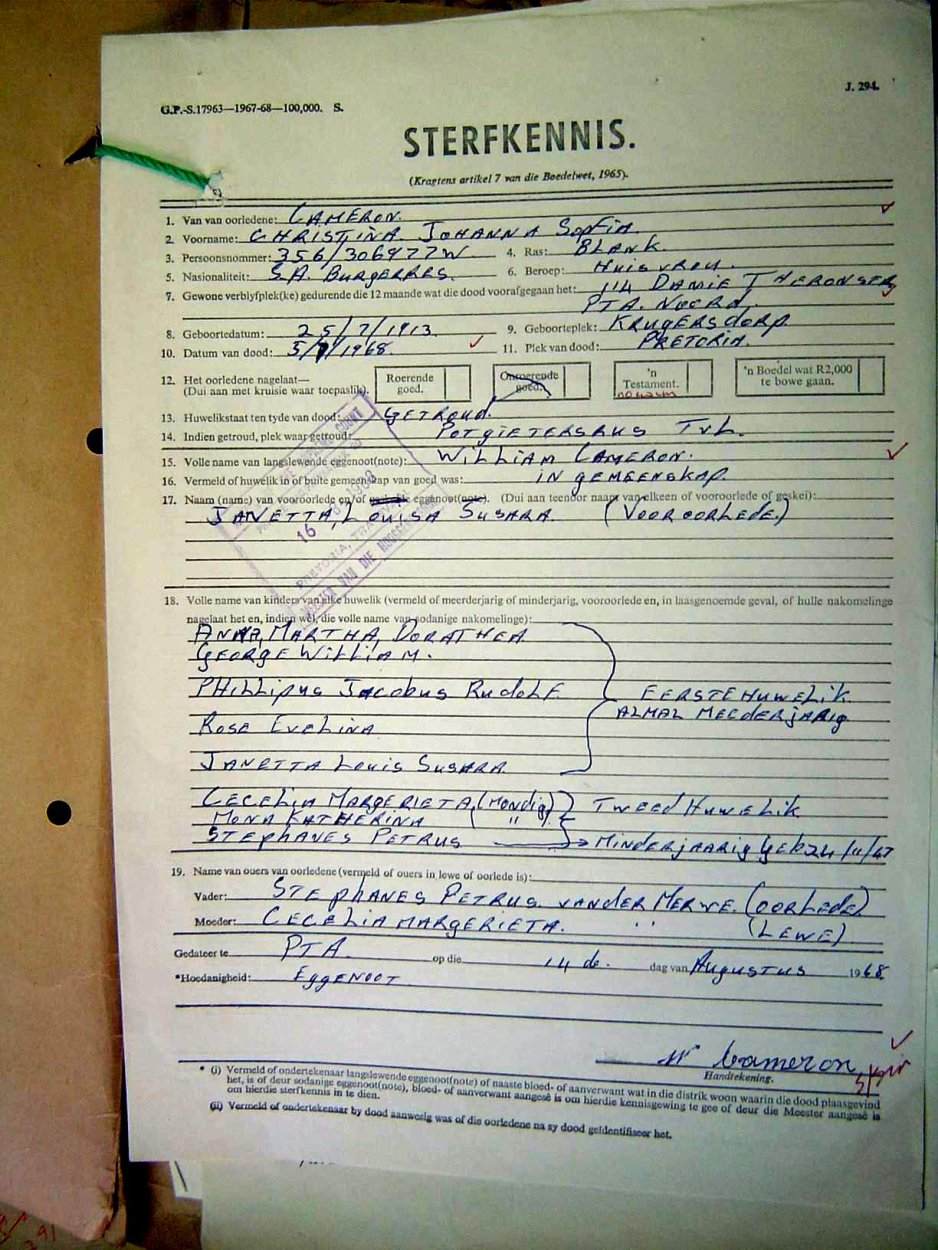 J. 294.
G.P.-S.17963—1967-68—100,000. S.
STERFKENNIS.
(Kragtens artikel 7 van die Boedelwet, 1965).
1. Van van oorledene: CAMERON.
2. Voorname: CHRISTINA JOHANNA SOPFIA
3. Persoonsnommer: 356/306977W 4. Ras: BLANK.
5. Nasionaliteit: S.A. BURGERRES. 6. Beroep: HUISVROU.
7. Gewone verblyfplek(ke) gedurende die 12 maande wat die dood voorafgegaan het: 114 DANIE THERONSTR
PTA. NOORD.
8. Geboortedatum: 25/7/1913. 9. Geboorteplek: KRUGERSDORP.
10. Datum van dood: 5/ /1968. 11. Plek van dood: PRETORIA.
12. Het oorledene nagelaat—
(Dui aan met kruisie waar toepaslik).
Roerende goed.
Onroerende goed.
'n Testament.
'n Boedel wat R2,000 te bowe gaan.
13. Huwelikstaat ten tyde van dood: GETROUD.
14. Indien getroud, plek waar getroud: POTGIETERSRUS TVL.
15. Volle name van langslewende eggenoot(note): WILLIAM CAMERON.
16. Vermeld of huwelik in of buite gemeenskap van goed was: IN GEMEENSKAP.
17. Naam (name) van vooroorlede en/of eggenoot(note). (Dui aan teenoor naam van elkeen of vooroorlede of geskei):
JANETTA, LOUISA SUSARA. (VOOROORLEDE.)
16 1968
18. Volle name van kinders van elke huwelik (vermeld of meerderjarig of minderjarig, vooroorlede en, in laasgenoemde geval, of hulle nakomelinge
nagelaat het en, indien wel, die volle name van sodanige nakomelinge):
ANNA, MARTHA, DORATHEA
GEORGE WILLIAM.
PHILLIPUS JACOBUS RUDOLF EERSTE HUWELIK
ALMAL MEEDERJARIG
ROSE EVELINA
JANETTA LOUIS SUSARA
CECELIA MARGERIETA, (MONDIG) TWEEDE HUWELIK
MONA KATHERINA ( " )
STEPHANES PETRUS MINDERJAARIG GEB 24/11/47
19. Name van ouers van oorledene (vermeld of ouers in lewe of oorlede is):
Vader: STEPHANES PETRUS VAN DER MERWE. (OORLEDE)
Moeder: CECELIA MARGERIETA. " (LEWE)
Gedateer te PTA. op die 14 de. dag van AUGUSTUS 1968
*Hoedanigheid: EGGENOOT
W Cameron
Handtekening.
* (i) Vermeld of ondertekenaar langslewende eggenoot(note) of naaste bloed- of aanverwant wat in die distrik woon waarin die dood plaasgevind
het, is of deur sodanige eggenoot(note), bloed- of aanverwant aangesê is om hierdie kennisgewing te gee of deur die Meester aangesê is
om hierdie sterfkennis in te dien.
(ii) Vermeld of ondertekenaar by dood aanwesig was of die oorledene na sy dood geïdentifiseer het.